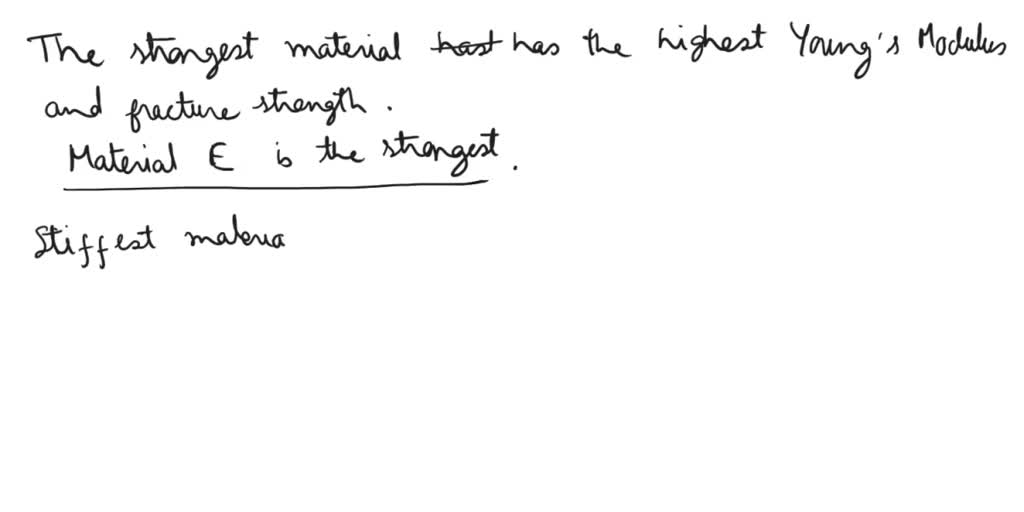 The strongest material hast has the highest Young's Modulus
and fracture strength.
Material E is the strongest.
Stiffest materia